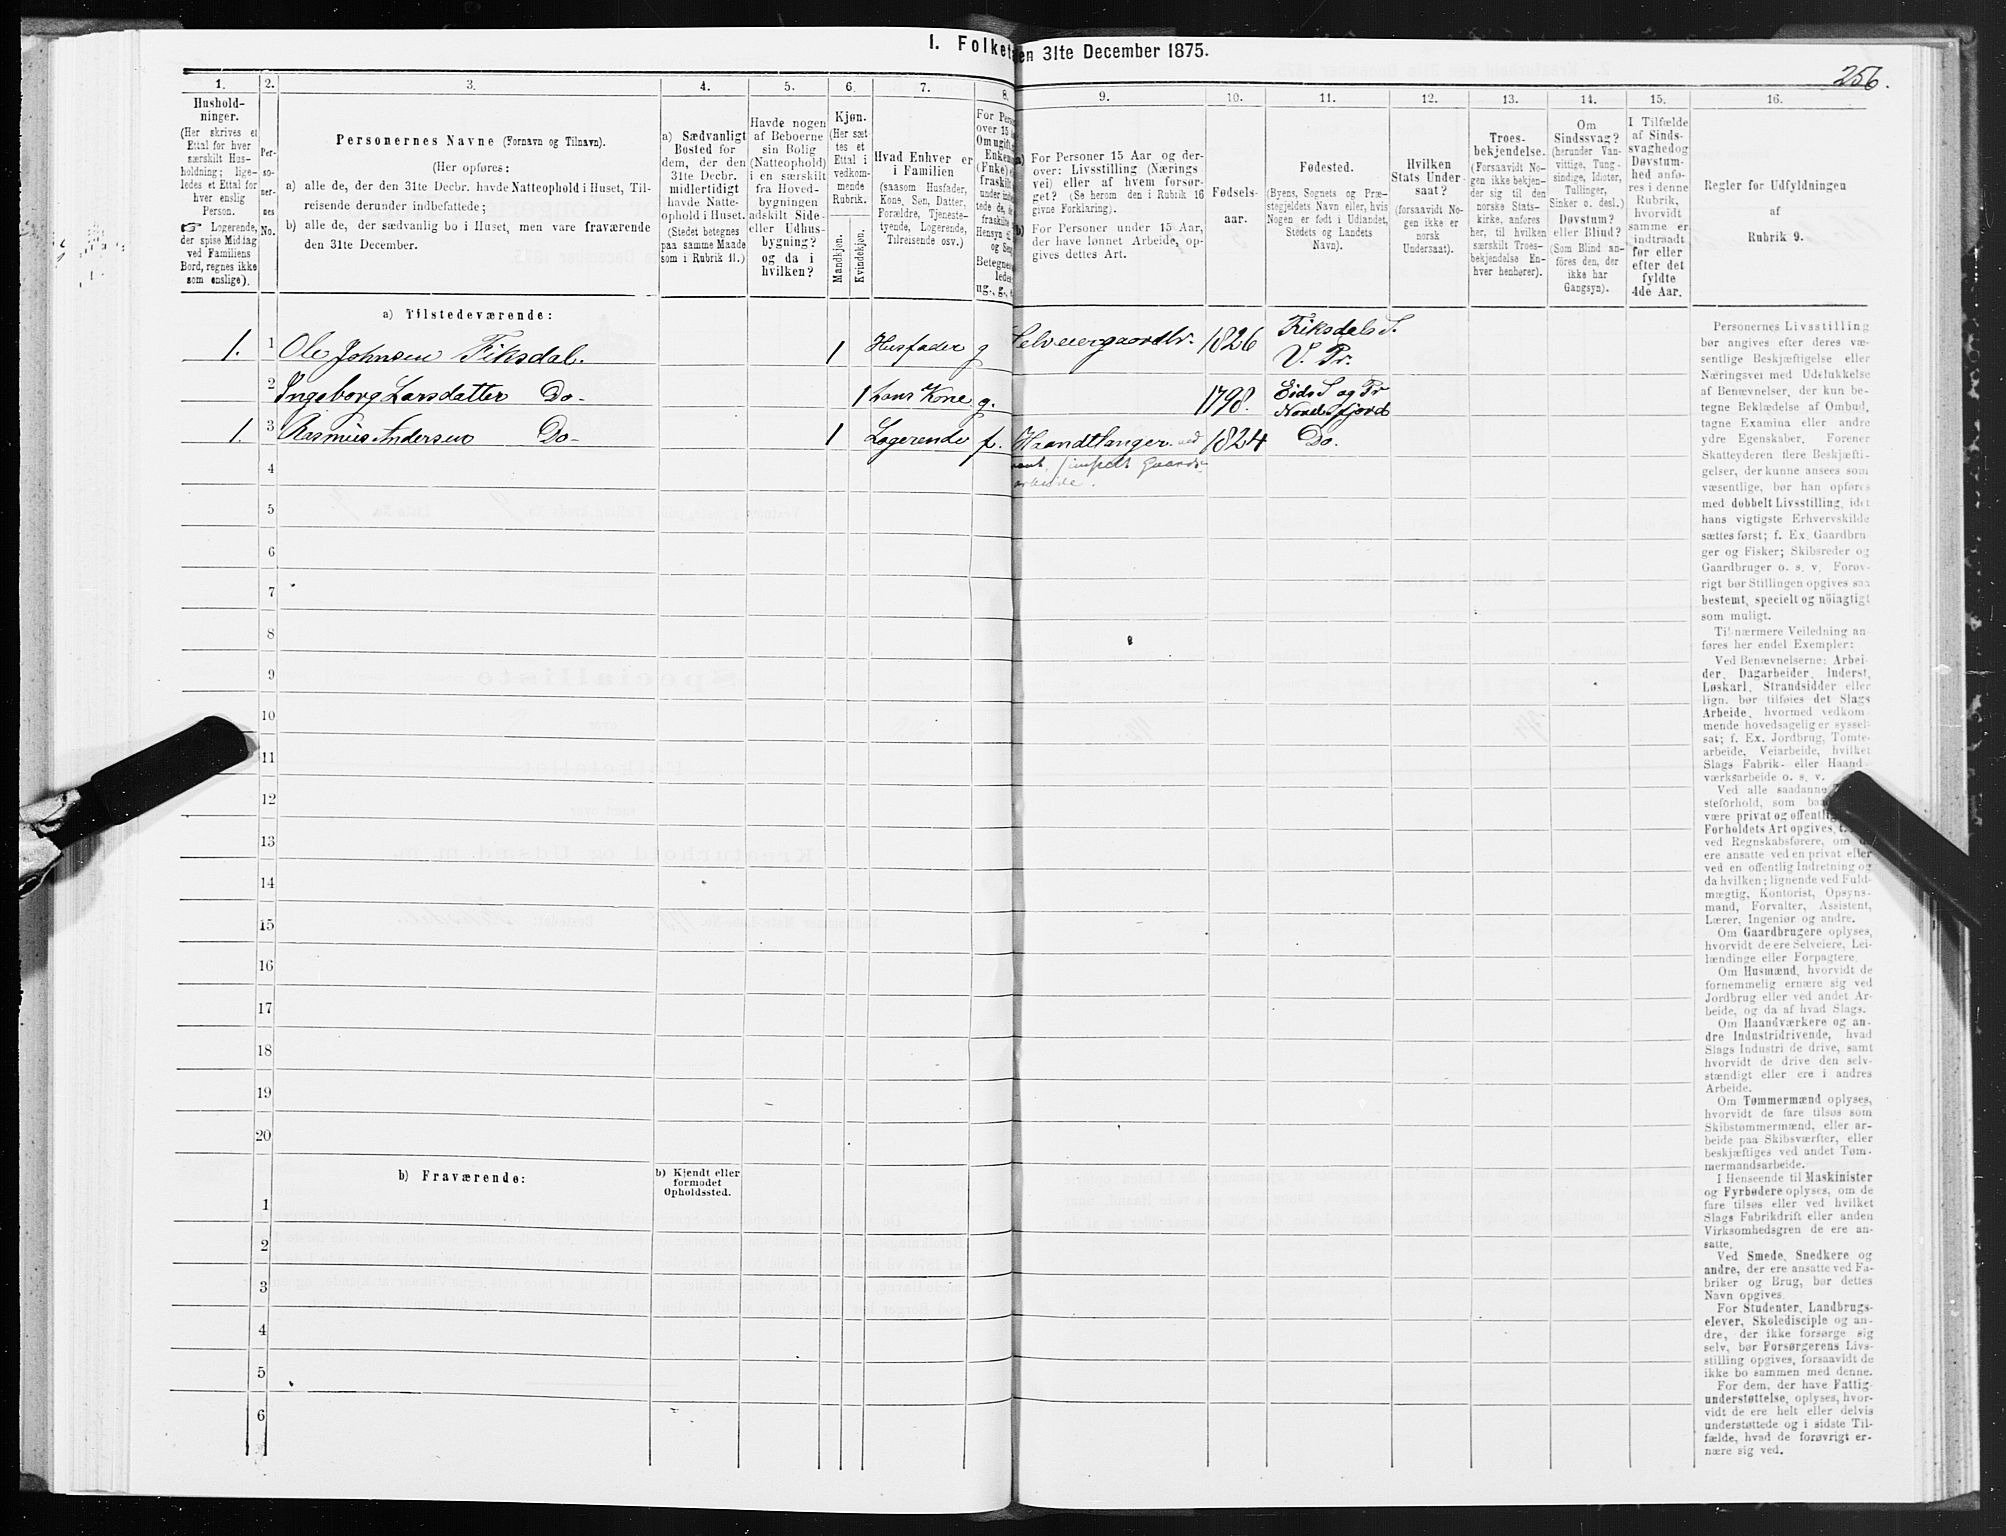 I. Folket
en 31te December 1875.
256.
1.
2.
3.
4.
5.
6.
7.
8.
9.
10.
11.
12.
13.
14.
15.
16.
Hushold-
ninger.
(Her skrives et
Ettal for hver
særskilt Hus-
holdning; lige-
ledes et Ettal for
hver enslig
Person.
☞ Logerende,
der spise Middag
ved Familiens
Bord, regnes ikke
som enslige).
Per-
so-
ner-
nes
No.
Personernes Navne (Fornavn og Tilnavn).
(Her opføres:
a) alle de, der den 31te Decbr. havde Natteophold i Huset, Til-
reisende derunder indbefattede;
b) alle de, der sædvanlig bo i Huset, men vare fraværende
den 31te December.
a) Sædvanligt
Bosted for
dem, der den
31te Decbr.
midlertidigt
havde Natte-
ophold i Huset.
(Stedet betegnes
paa samme Maade
som i Rubrik 11.)
Havde nogen
af Beboerne
sin Bolig
(Natteophold)
i en særskilt
fra Hoved-
bygningen
adskilt Side-
eller Udhus-
bygning?
og da i
hvilken?
Kjøn.
(Her sæt
tes et
Ettal i
vedkom-
mende
Rubrik.
Mandkjøn.
Kvindekjøn.
Hvad Enhver er
i Familien
(saasom Husfader,
Kone, Søn, Datter,
Forældre, Tjeneste-
tyende, Logerende,
Tilreisende osv.)
For Pers
over 15
Om ugift,
Enkem
(Enke) e
fraskilt
under ind
tede de,
fraskilt
Hensyn
og Sen
Betegnes
ledes
ug., g., e
a) For Personer 15 Aar og der-
over: Livsstilling (Nærings
vei) eller af hvem forsør-
get? (Se herom den i Rubrik 16
givne Forklaring).
b) For Personer under 15 Aar,
der have lønnet Arbeide, op-
gives dettes Art.
Fødsels-
aar.
Fødested.
(Byens, Sognets og Præ-
stegjeldets Navn eller, hvis
Nogen er født i Udlandet,
Stedets og Landets
Navn).
Hvilken
Stats Under-
saat?
(forsaavidt No-
gen ikke er
norsk
Undersaat).
Troes-
bekjendelse.
(Forsaavidt No-
gen ikke bekjen-
der sig til den
norske Stats-
kirke, anføres
her, til hvilken
særskilt Troes-
bekjendelse En-
hver henhører).
Om
Sindssvag?
(herunder Van-
vittige, Tung-
sindige, Idioter,
Tullinger,
Sinker o. desl.)
Døvstum?
eller Blind?
(Som Blind an-
føres den, der
ikke har
Gangsyn).
I Tilfælde
af Sinds-
svaghed og
Døvstum-
hed anfø-
res i denne
Rubrik,
hvorvidt
samme er
indtraadt
før eller
efter det
fyldte
4de Aar.
Regler for Udfyldningen
af
Rubrik 9.
a) Tilstedeværende:
1. 1 Ole Johnsen Fiksdal. 1 Husfader g Selveiergaardbr. 1826 Fiksdals S.
V. Pr.
2 Ingeborg Larsdatter Do- 1 hans Kone g. 1798. Eids S og Pr
Nordfjord
1. 3 Rasmus Andersen Do- 1 Logerende f. Haandtlanger ved
1824 Do.
simpelt Gaards-
arbeide.
4
5
6
7
8
9
10
11
12
13
14
15
16
17
18
19
20
b) Fraværende:
b) Kjendt eller
formodet
Opholdssted.
1
2
3
4
5
6
Personernes Livsstilling
bør angives efter deres væ-
sentlige Beskjæftigelse eller
Næringsvei med Udelukkelse
af Benævnelser, der kun be-
tegne Beklædelse af Ombud,
tagne Examina eller andre
ydre Egenskaber. Forener
Skatteyderen flere Beskjæfti-
gelser, der kunne ansees som
væsentlige, bør han opføres
med dobbelt Livsstilling, idet
hans vigtigste Erhvervskilde
sættes først; f. Ex. Gaardbru
ger og Fisker; Skibsreder og
Gaardbruger o. s. v. Forøv-
rigt bør Stillingen opgives saa
bestemt, specielt og nöiagtigt
som muligt.
Til nærmere Veiledning an-
føres her endel Exempler:
Ved Benævnelserne: Arbei-
der, Dagarbeider, Inderst,
Løskarl, Strandsidder eller
lign. bør tilføies det Slags
Arbeide, hvormed vedkom-
mende hovedsagelig er syssel-
sat; f. Ex. Jordbrug, Tomte-
arbeide, Veiarbeide, hvilket
Slags Fabrik- eller Haand-
værksarbeide o. s. v.
Ved alle saadanne
steforhold, som baa
være privat og offentlig
Forholdets Art opgives,
ved Regnskabsførere, om
ere ansatte ved en privat eller
ved en offentlig Indretning og
da hvilken; lignende ved Fuld-
mægtig, Kontorist, Opsyns-
mand, Forvalter, Assistent,
Lærer, Ingeniør og andre.
Om Gaardbrugere oplyses,
hvorvidt de ere Selveiere, Lei-
lændinge eller Forpagtere.
Om Husmænd, hvorvidt de
fornemmelig ernære sig ved
Jordbrug eller ved andet Ar-
beide, og da af hvad Slags.
Om Haandværkere og an-
dre Industridrivende, hvad
Slags Industri de drive, samt
hvorvidt de drive den selv-
stændigt eller ere i andres
Arbeide.
Om Tømmermænd oplyses,
hvorvidt de fare tilsøs som
Skibstømmermænd, eller ar-
beide paa Skibsværfter, eller
beskjæftiges ved andet Tøm-
mermandsarbeide.
I Henseende til Maskinister
og Fyrbødere oplyses, om de
fare tilsøs eller ved hvilket
Slags Fabrikdrift eller anden
Virksomhedsgren de ere an-
satte.
Ved Smede, Snedkere og
andre, der ere ansatte ved Fa-
briker og Brug, bør dettes
Navn opgives.
For Studenter, Landbrugs-
elever, Skoledisciple og an-
dre, der ikke forsørge sig
selv, bør Forsørgerens Livs-
stilling opgives, forsaavidt de
ikke bo sammen med denne.
For dem, der have Fattig-
understøttelse, oplyses, hvor-
vidt de ere helt eller delvis
understøttede og i sidste Til-
fælde, hvad de forøvrigt er-
nære sig ved.